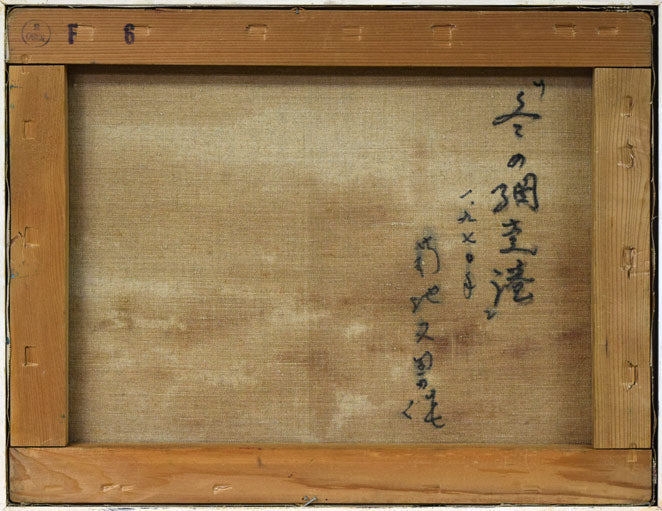 F 6
「冬の網走港」
一九七〇年
菊地又男作